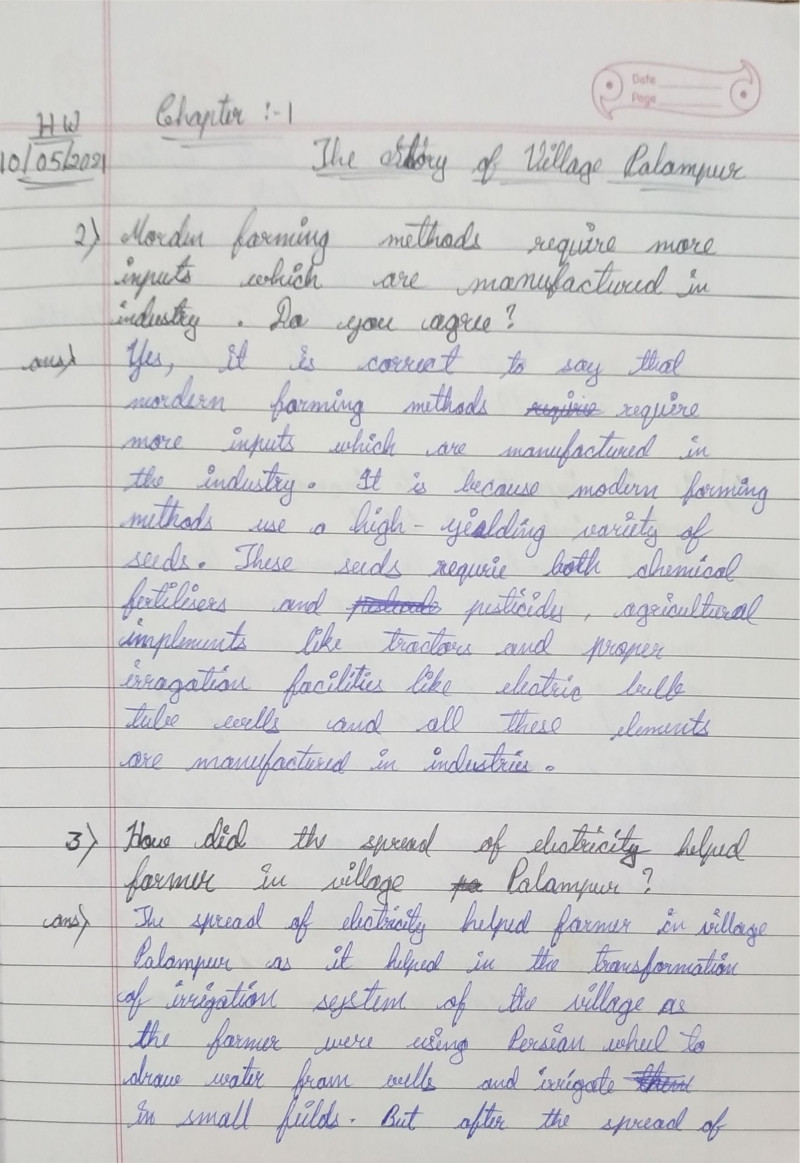 Date
Page
HW
10/05/2021
Chapter :- 1
The Story of Village Palampur
2) Mordern farming methods require more
inputs which are manufactured in
industry. Do you agree?
ans) Yes, it is correct to say that
mordern farming methods require
more inputs which are manufactured in
the industry. It is because modern farming
methods use a high-yielding variety of
seeds. These seeds requrie both chemical
fertilisers and pesticides, agricultural
implements like tractors and proper
irragation facilities like electric
tube wells and all these elements
are manufactured in industries.
3) How did the spread of electricity helped
farmer in village Palampur?
ans) The spread of electricity helped farmer in village
Palampur as it helped in the transformation
of irrigation system of the village as
the farmer were using Persian wheel to
draw water from wells and irrigate
in small fields. But after the spread of